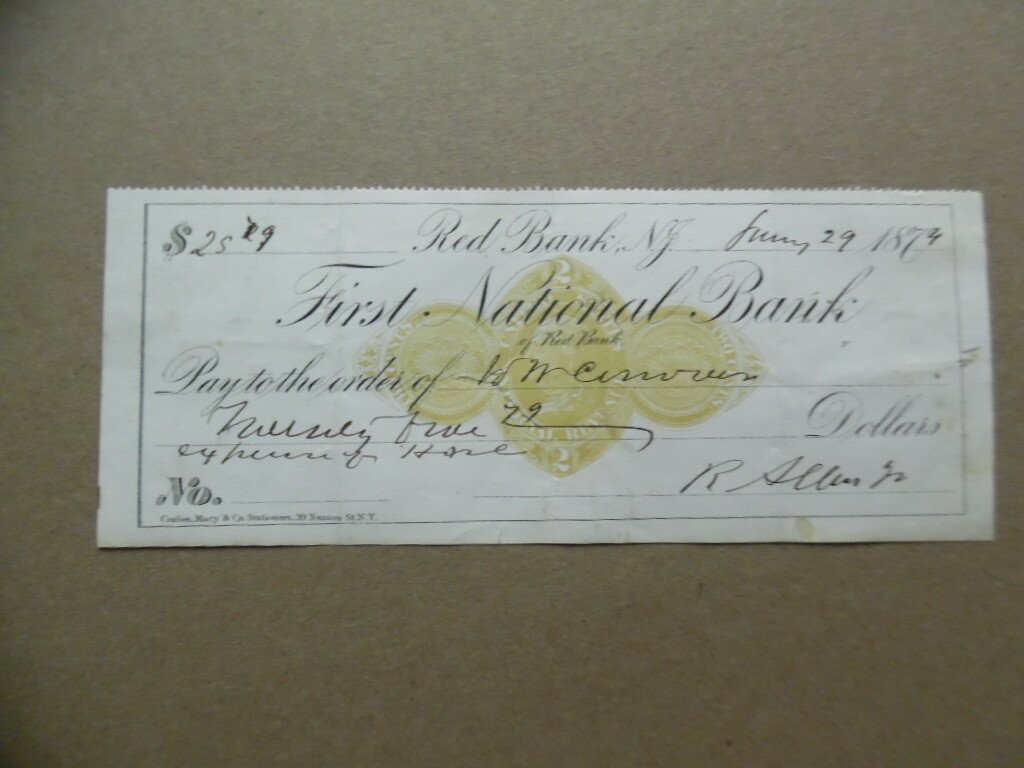 $ 25 29 Red Bank, N.J. 29 187
2
First National Bank
of Red Bank
Pay to the order of W Conover
Twenty five 29 Dollars
expense of
2
R Allen Jr
No.
Corlies, Macy & Co. Stationers, 39 Nassau St. N.Y.